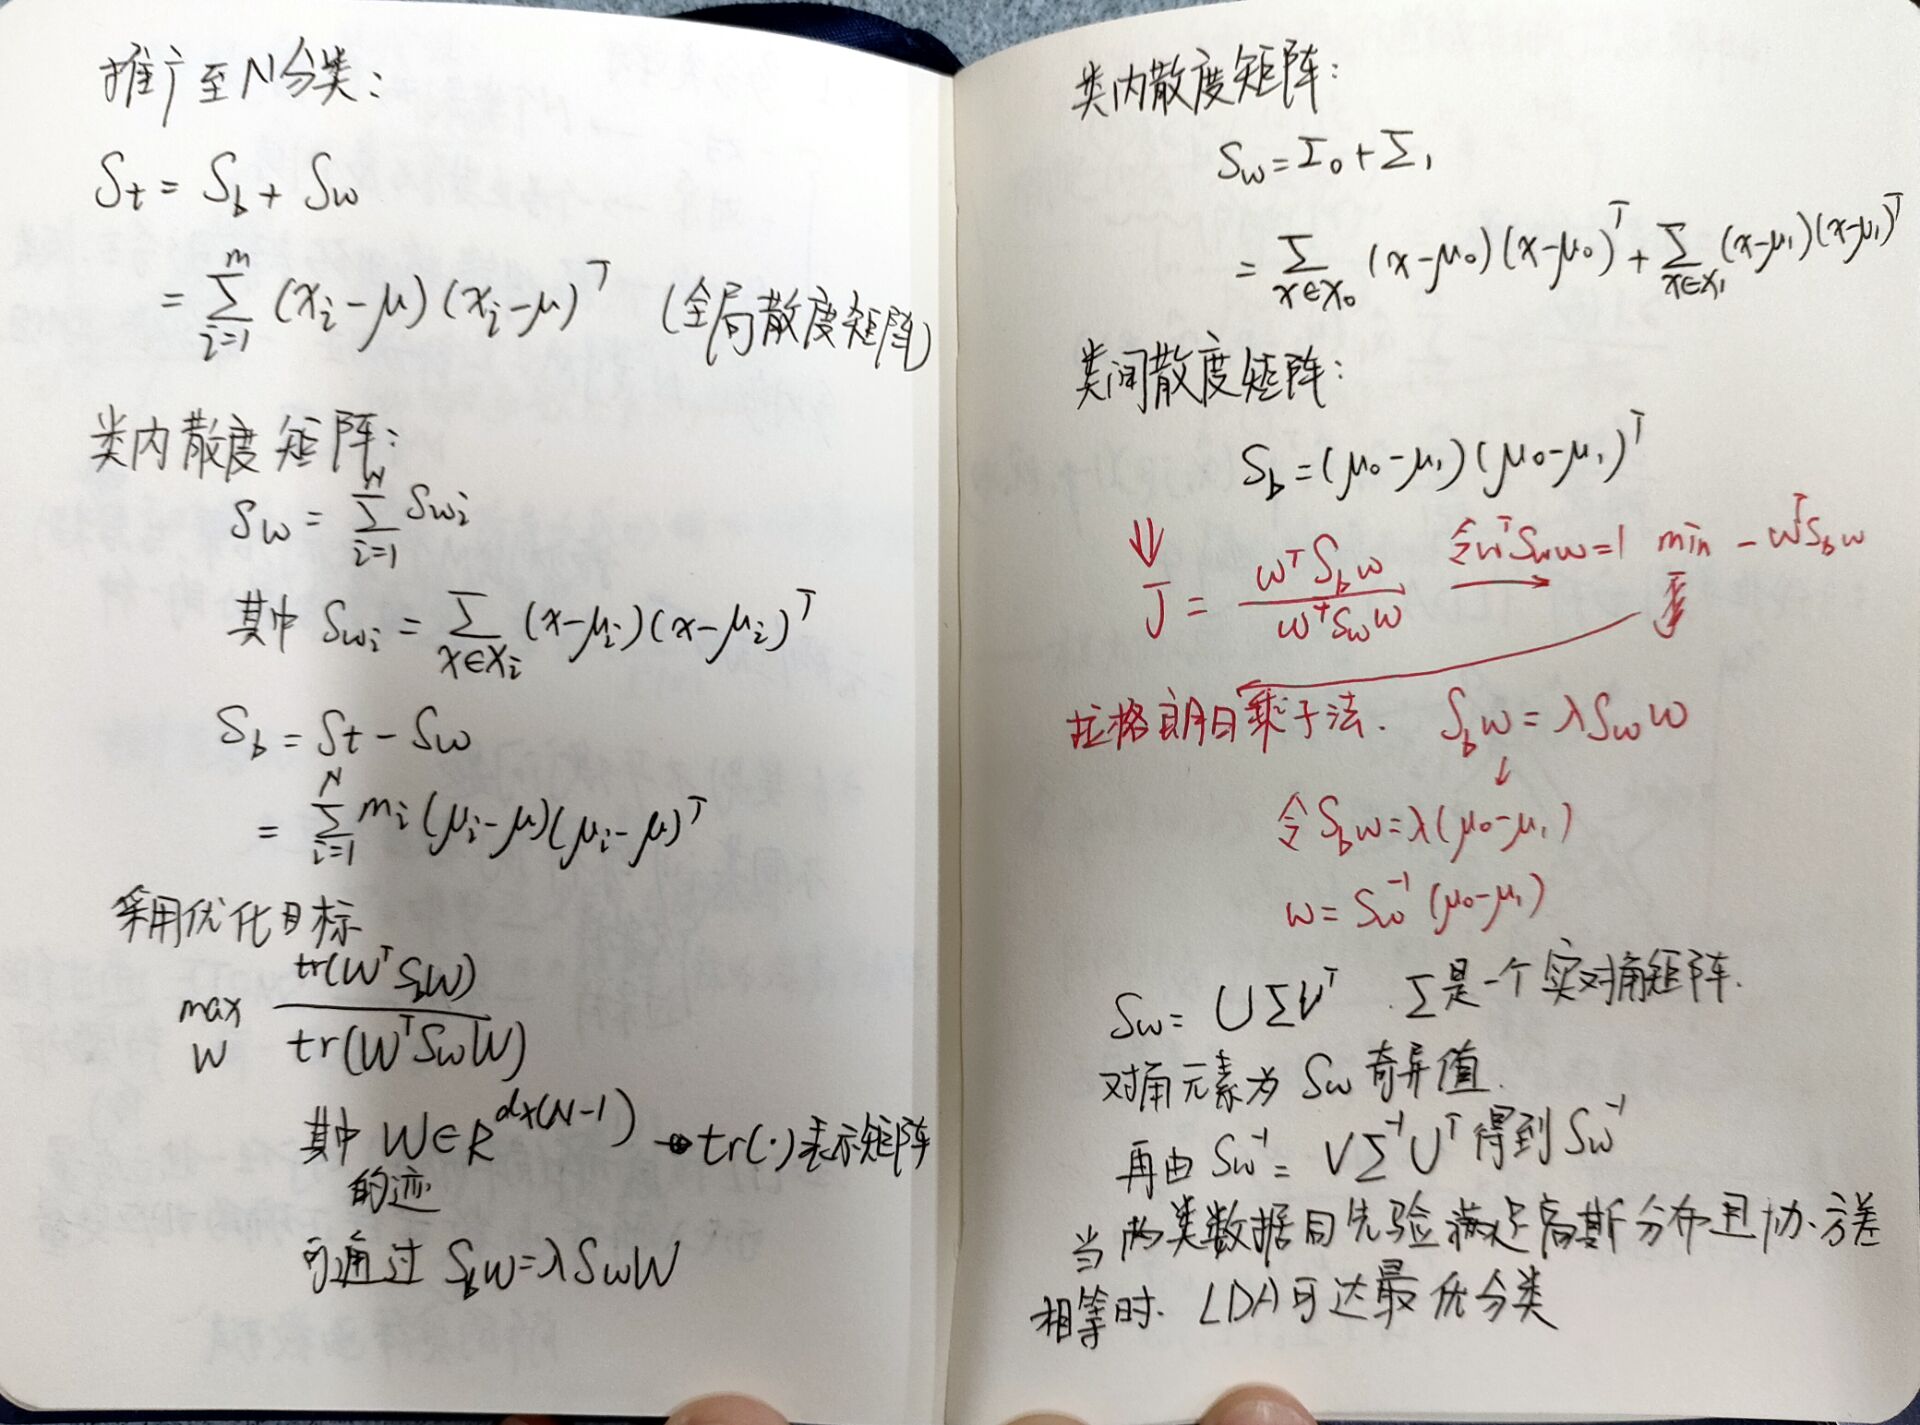 推广至N分类:
St = Sb + Sw
= ∑_{i=1}^{m} (xi-μ)(xi-μ)^T (全局散度矩阵)
类内散度矩阵:
Sw = ∑_{i=1}^{N} Swi
其中 Swi = ∑_{x∈Xi} (x-μi)(x-μi)^T
Sb = St - Sw
= ∑_{i=1}^{N} mi (μi-μ)(μi-μ)^T
采用优化目标
max_W tr(W^T Sb W) / tr(W^T Sw W)
其中 W∈R^{d×(N-1)} tr(·)表示矩阵
的迹
可通过 SbW=λSwW
类内散度矩阵:
Sw = Σ0 + Σ1
= ∑_{x∈X0} (x-μ0)(x-μ0)^T + ∑_{x∈X1} (x-μ1)(x-μ1)^T
类间散度矩阵:
Sb = (μ0-μ1)(μ0-μ1)^T
⇓
J = w^T Sb w / w^T Sw w 令w^T Sw w=1 → min - w^T Sb w
拉格朗日乘子法. Sb w = λ Sw w
↓
令 Sb w = λ(μ0-μ1)
w = Sw^{-1} (μ0-μ1)
Sw = UΣV^T . Σ是一个实对角矩阵.
对角元素为 Sw 奇异值.
再由 Sw^{-1} = VΣ^{-1}U^T 得到 Sw^{-1}
当两类数据同先验满足高斯分布且协方差
相等时. LDA可达最优分类